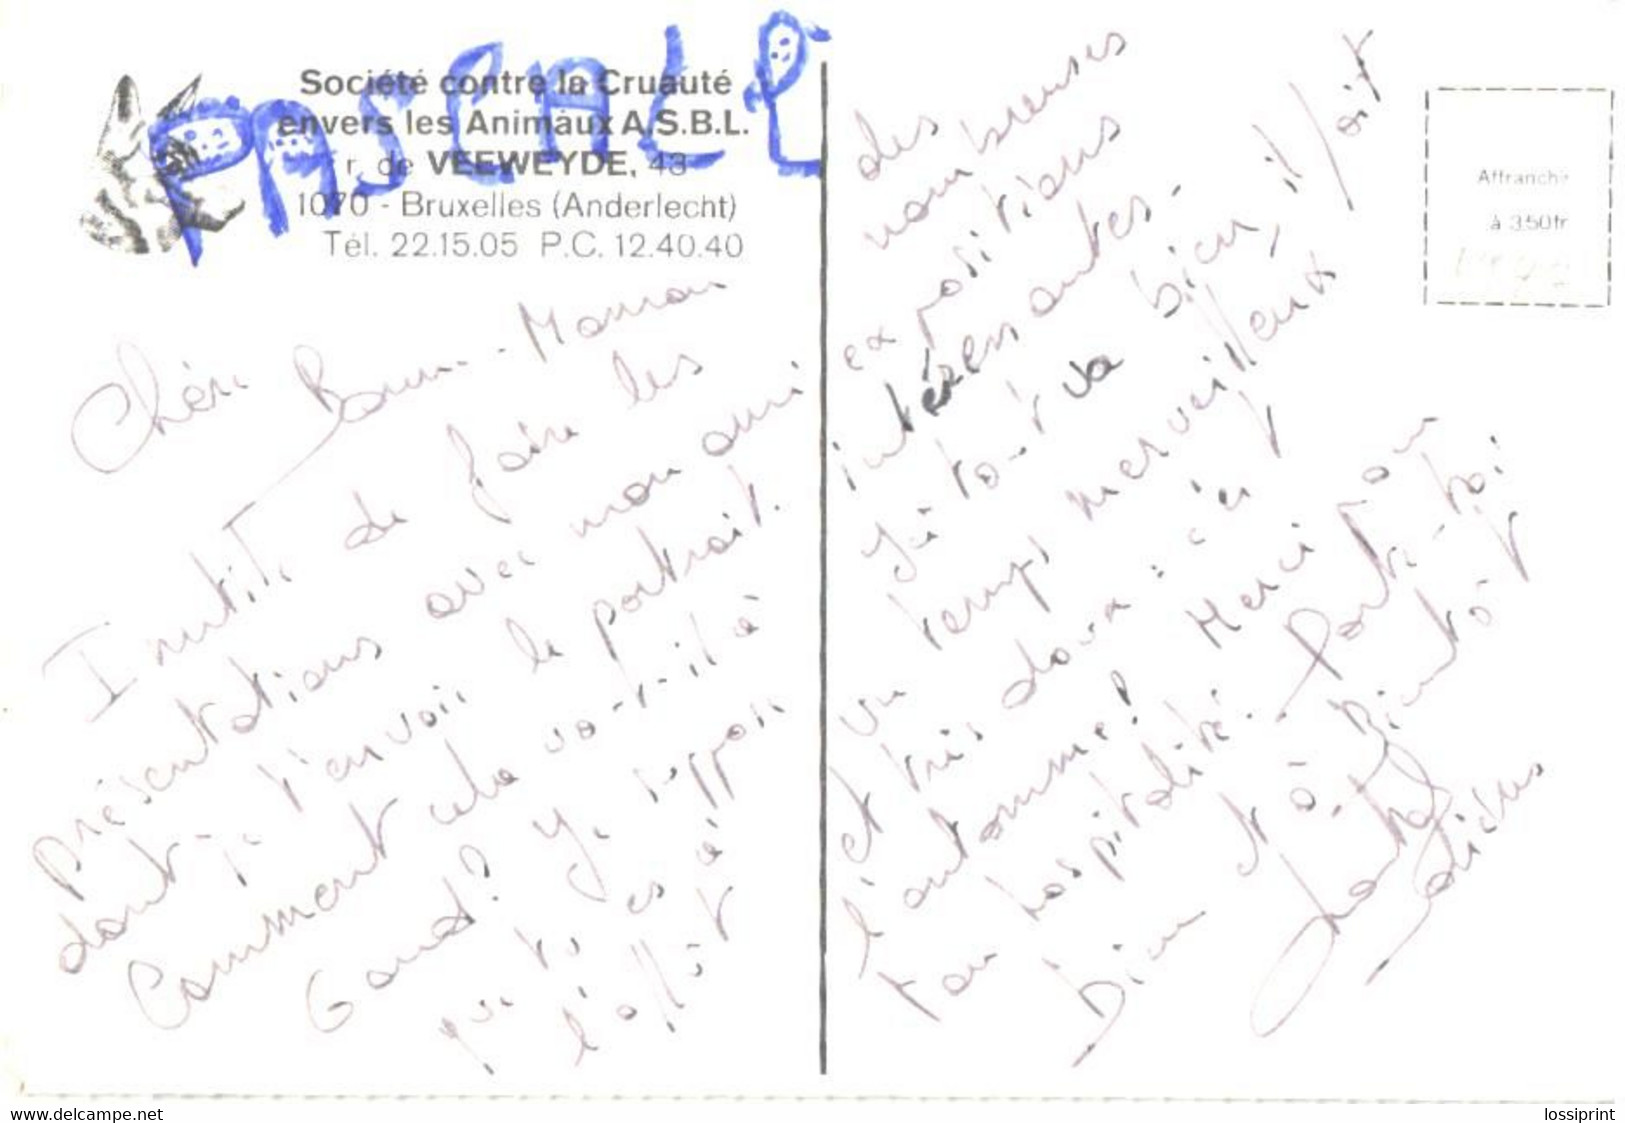 PASCALE
Société contre la Cruauté
envers les Animaux A.S.B.L.
r. de VEEWEYDE, 43
1070 - Bruxelles (Anderlecht)
Tél. 22.15.05 P.C. 12.40.40
Chère Bonne-Maman
Inutile de faire les
présentations avec mon ami
dont je t'envoie le portrait.
Comment cela va-t-il à
Gand? Je suppose
que tu es à
l'affût
des
nombreuses
expositions
intéressantes.
Ici tout va bien, il fait
un temps merveilleux
et très doux ici
l'automne! Merci pour
ton hospitalité. Porte-toi
bien et à bientôt
Affranchir
à 3.50fr
www.delcampe.net
lossiprint